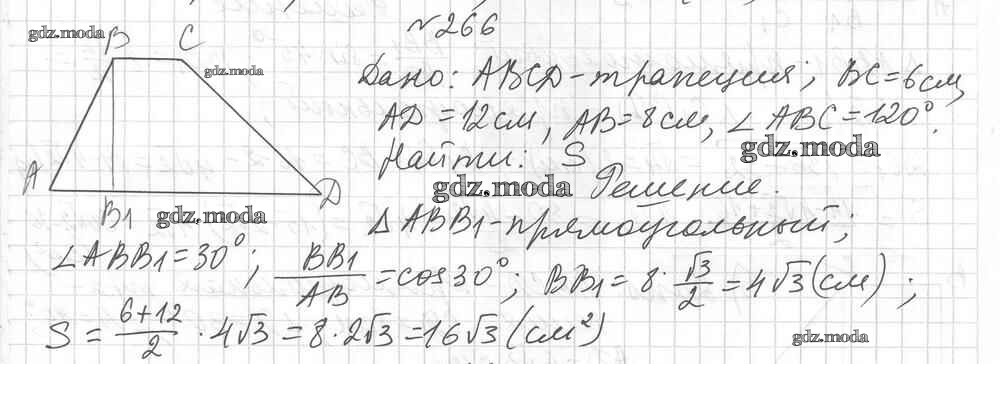 №266
gdz.moda
B C
gdz.moda
Дано: ABCD-трапеция; BC=6см,
AD=12см, AB=8см, ∠ABC=120°.
gdz.moda
Найти: S
A D
gdz.moda
Решение.
B1
gdz.moda
△ABB1-прямоугольный;
∠ABB1=30°; BB1/AB=cos30°; BB1=8·√3/2=4√3(см);
S=(6+12)/2·4√3=8·2√3=16√3(см²)
gdz.moda